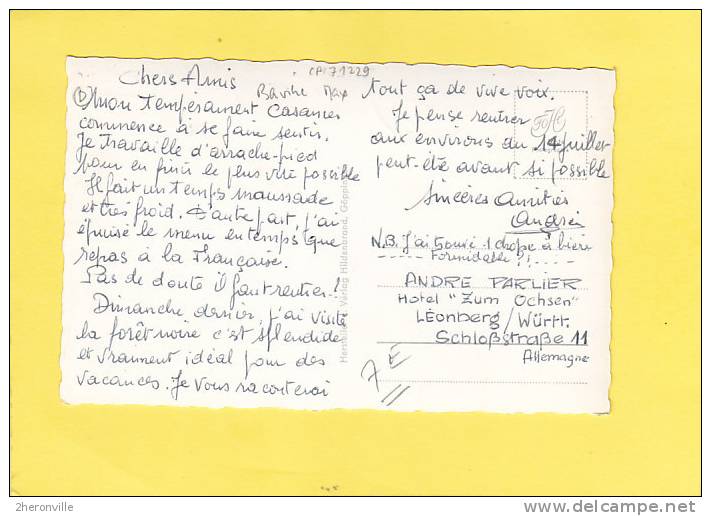 CPI 71229
Chers Amis
Mon Tempérament Casanier
commence à se faire sentir.
Je travaille d'arrache-pied
pour en finir le plus vite possible
Il fait un temps maussade
et très froid. D'autre part, j'ai
épuisé le menu en temps que
repas à la Française.
Pas de doute il faut rentrer.!
Dimanche dernier, j'ai visité
la forêt noire c'est splendide
et vraiment idéal pour des
vacances. Je vous raconterai
tout ça de vive voix.
Je pense rentrer
aux environs du 14 juillet
peut-été avant si possible
Sincères Amitiés
André
N.B. J'ai trouvé 1 chope à bière
----- Formidable ?! -----
ANDRE PARLIER
Hotel "Zum Ochsen"
Léonberg/Württ.
Schloßstraße 11
Allemagne
7E
Verlag Hildenbrand, Göppingen
2heronville
delcampe.net